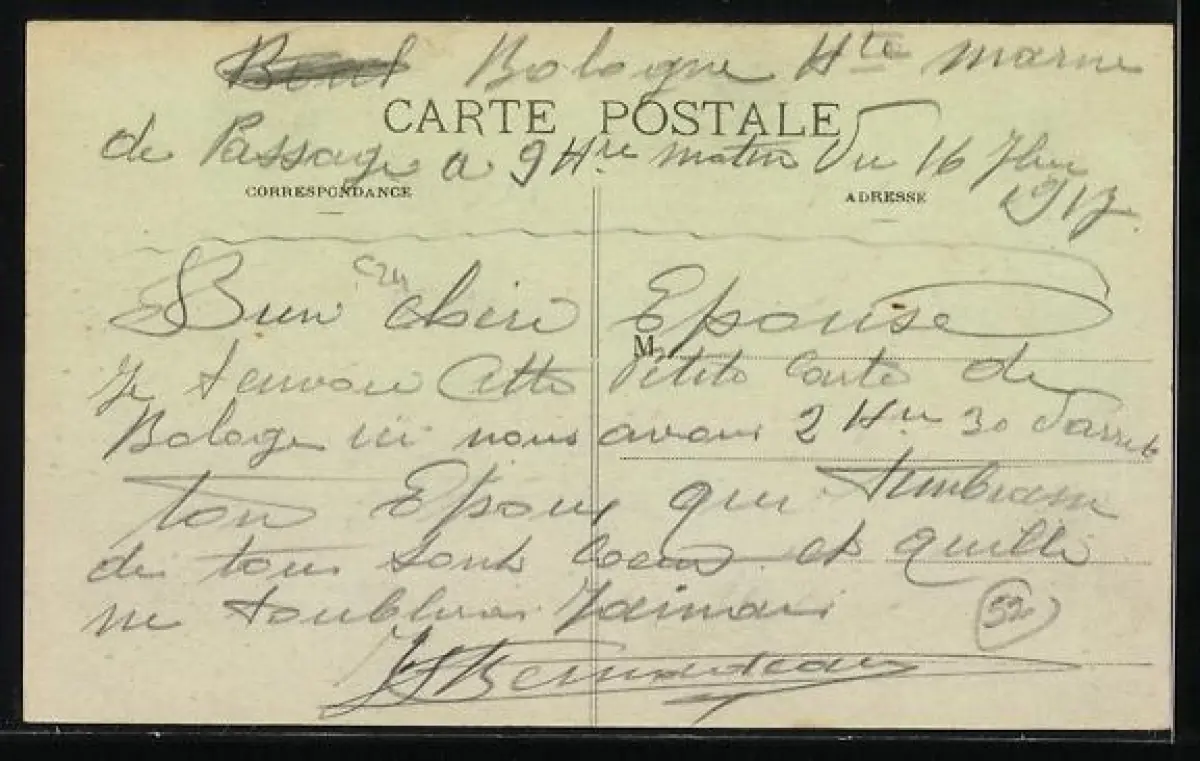 Bologne Hte Marne
CARTE POSTALE
de Passage a 9 Hre matin Du 16 7bre
CORRESPONDANCE
ADRESSE
1917
Bien chere Epouse
M
Je tenvoie Cette Petite Carte de
Bologne ici nous avons 2 Hre 30 darret
ton Epoux qui tembrasse
de tous sont Coeur et quille
ne toubliras Jaimais
52